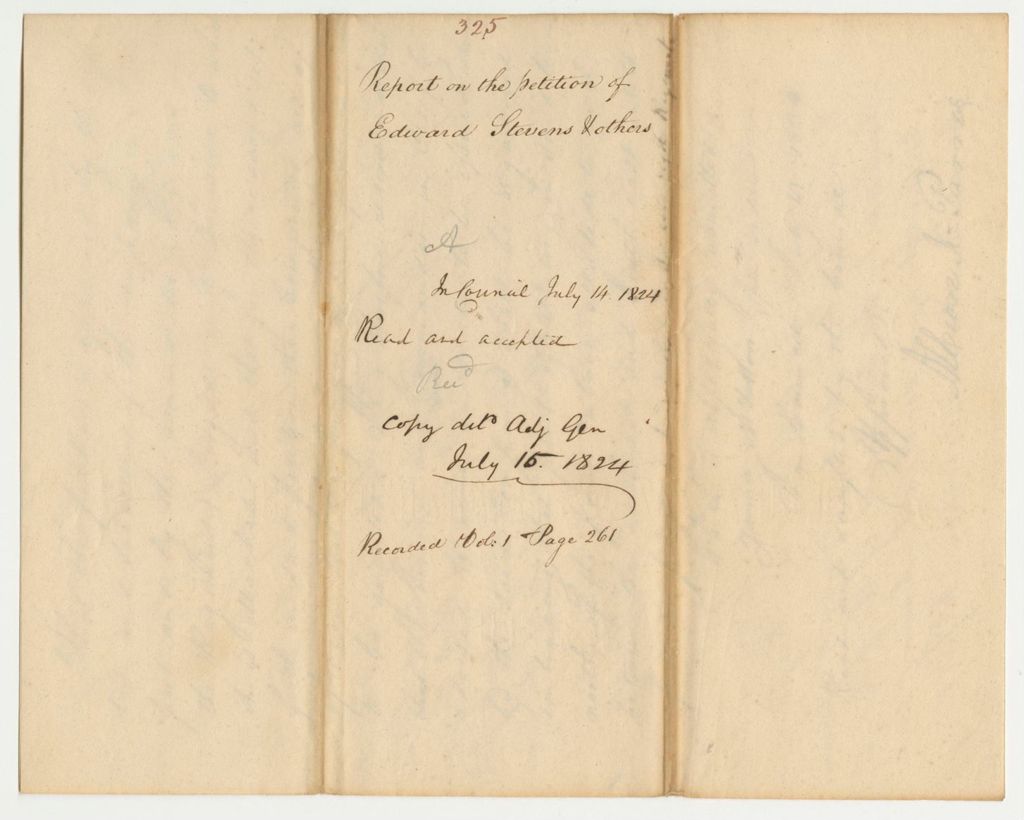 325
Report on the petition of
Edward Stevens & others
A
In Council July 14. 1824
Read and accepted
Recd
Copy deld Adj Gen
July 15. 1824
Recorded Vol: 1 Page 261